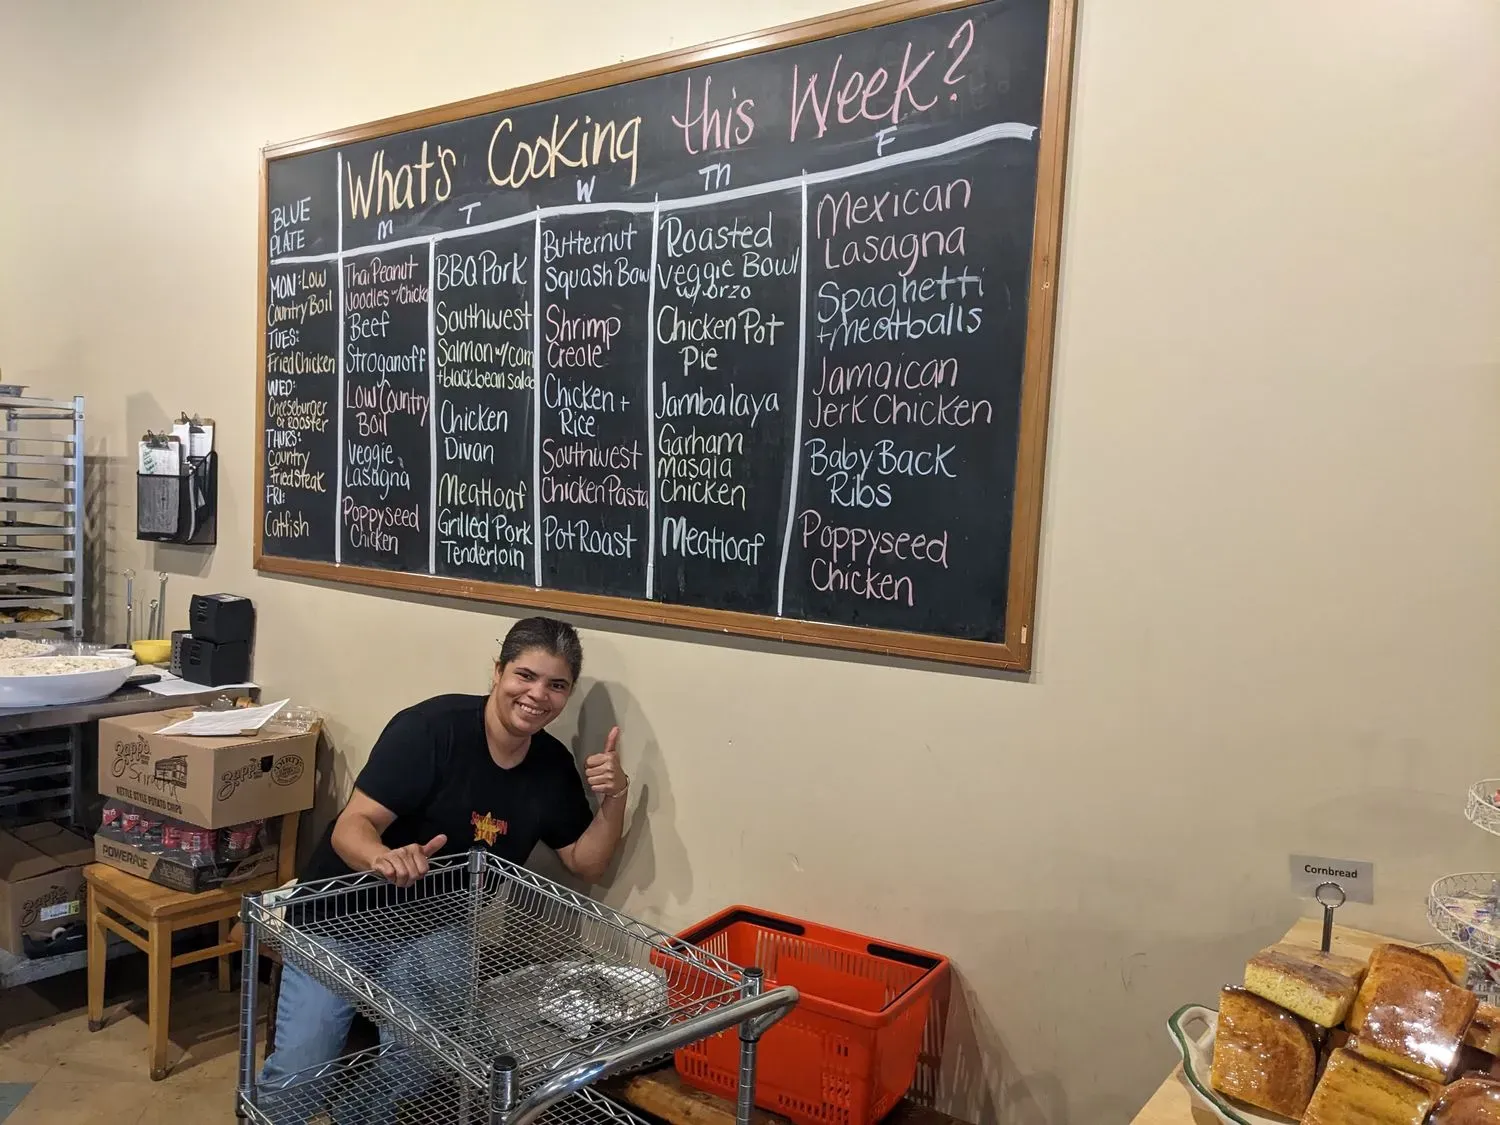 What's Cooking this Week?
BLUE
PLATE
MON: Low
Country Boil
TUES:
Fried Chicken
WED:
Cheeseburger
or Rooster
THURS:
Country
Fried Steak
FRI:
Catfish
M
Thai Peanut
Noodles w/Chicke
Beef
Stroganoff
Low Country
Boil
Veggie
Lasagna
Poppyseed
Chicken
T
BBQ Pork
Southwest
Salmon w/corn
+blackbean salad
Chicken
Divan
Meatloaf
Grilled Pork
Tenderloin
W
Butternut
Squash Bowl
Shrimp
Creole
Chicken +
Rice
Southwest
Chicken Pasta
Pot Roast
Th
Roasted
Veggie Bowl
w/orzo
Chicken Pot
Pie
Jambalaya
Garham
Masala
Chicken
Meatloaf
F
Mexican
Lasagna
Spaghetti
+meatballs
Jamaican
Jerk Chicken
Baby Back
Ribs
Poppyseed
Chicken
zapp's
zapp's
KETTLE STYLE POTATO CHIPS
POWERADE
zapp's
Cornbread